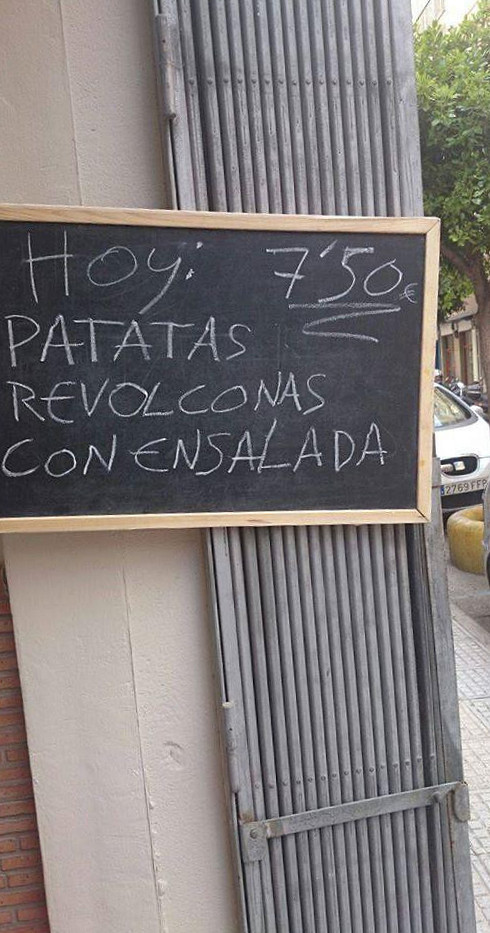 Hoy: 7'50 €
PATATAS
REVOLCONAS
CON ENSALADA
2769 FFP